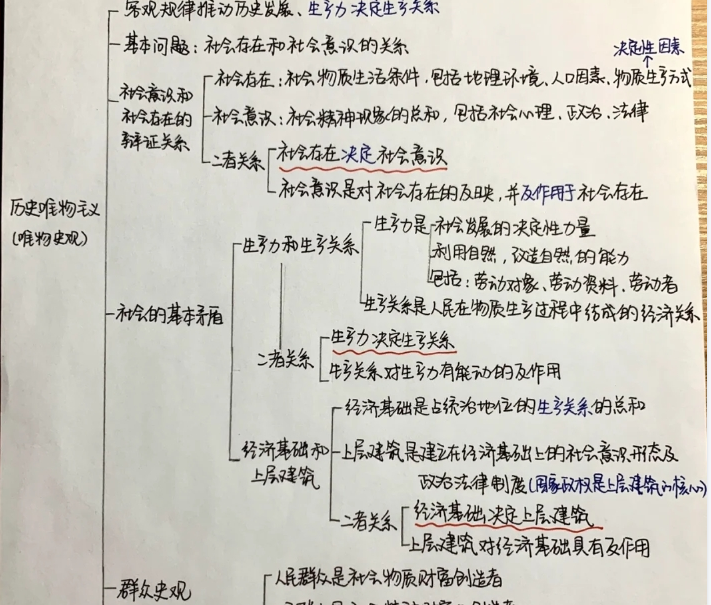 客观规律推动历史发展、生产力决定生产关系
基本问题：社会存在和社会意识的关系
决定性因素
社会意识和
社会存在的
辩证关系
社会存在：社会物质生活条件，包括地理环境、人口因素、物质生产方式
社会意识：社会精神现象的总和，包括社会心理、政治、法律
二者关系
社会存在决定社会意识
社会意识是对社会存在的反映，并反作用于社会存在
历史唯物主义
(唯物史观)
社会的基本矛盾
生产力和生产关系
生产力是
社会发展的决定性力量
利用自然，改造自然的能力
包括：劳动对象、劳动资料、劳动者
生产关系是人民在物质生产过程中结成的经济关系
二者关系
生产力决定生产关系
生产关系对生产力有能动的反作用
经济基础和
上层建筑
经济基础是占统治地位的生产关系的总和
上层建筑是建立在经济基础上的社会意识形态及
政治法律制度(国家政权是上层建筑的核心)
二者关系
经济基础决定上层建筑
上层建筑对经济基础具有反作用
群众史观
人民群众是社会物质财富创造者